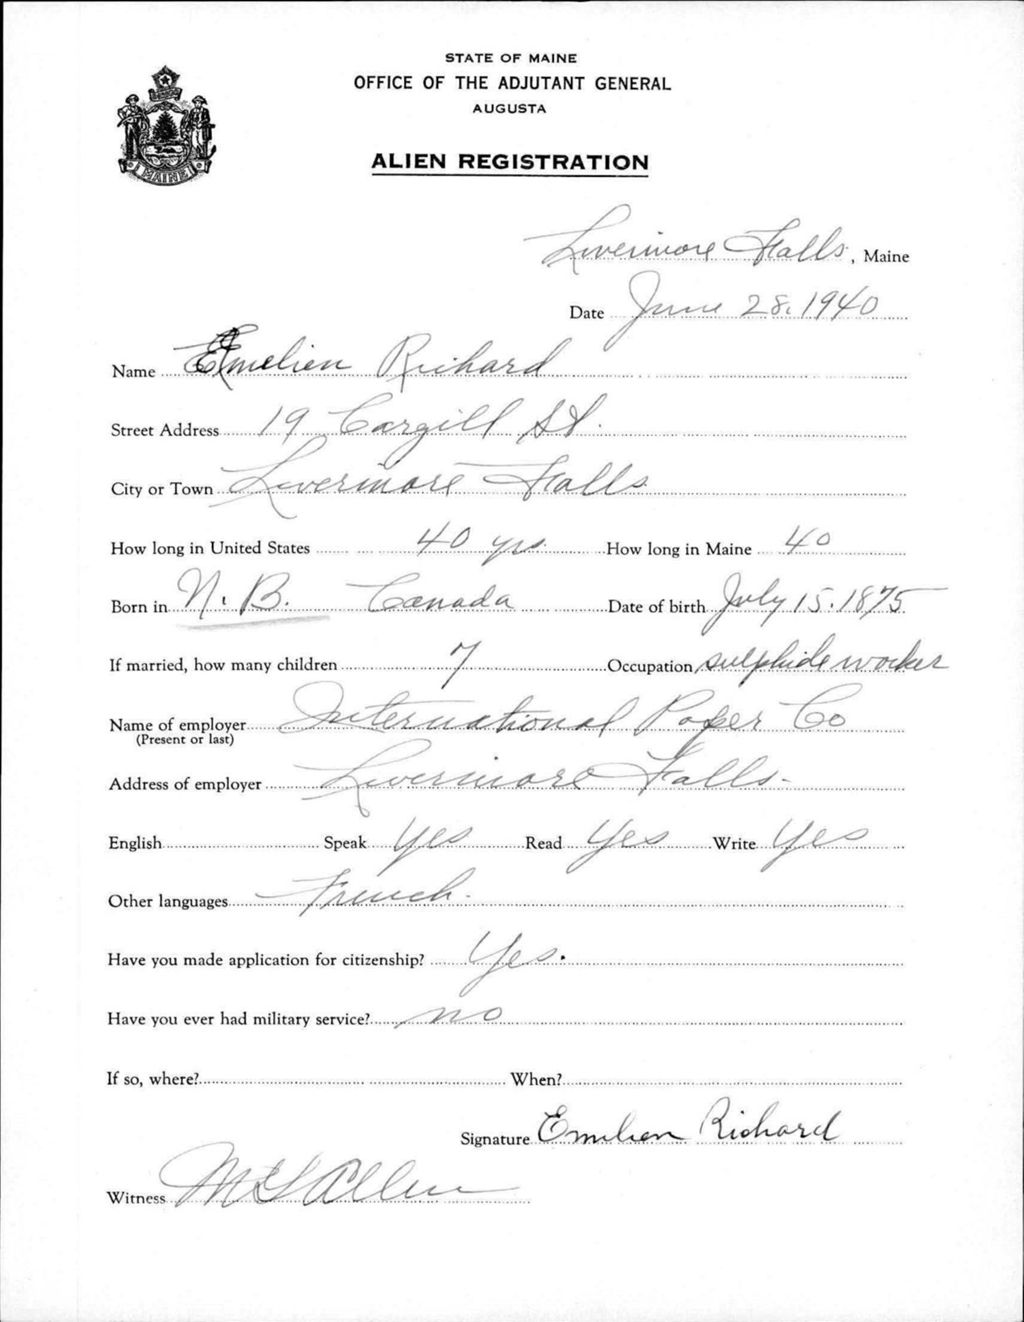 STATE OF MAINE
OFFICE OF THE ADJUTANT GENERAL
AUGUSTA
MAINE
ALIEN REGISTRATION
Livermore Falls, Maine
Date June 28, 1940
Name Emelien Richard
Street Address 19 Cargill St.
City or Town Livermore Falls
How long in United States 40 yrs. How long in Maine 40
Born in N. B. Canada Date of birth July 15, 1875
If married, how many children 7 Occupation sulphide worker
Name of employer International Paper Co
(Present or last)
Address of employer Livermore Falls
English Speak Yes Read Yes Write Yes
Other languages French.
Have you made application for citizenship? Yes.
Have you ever had military service? no
If so, where? When?
Signature Emelien Richard
Witness Allen